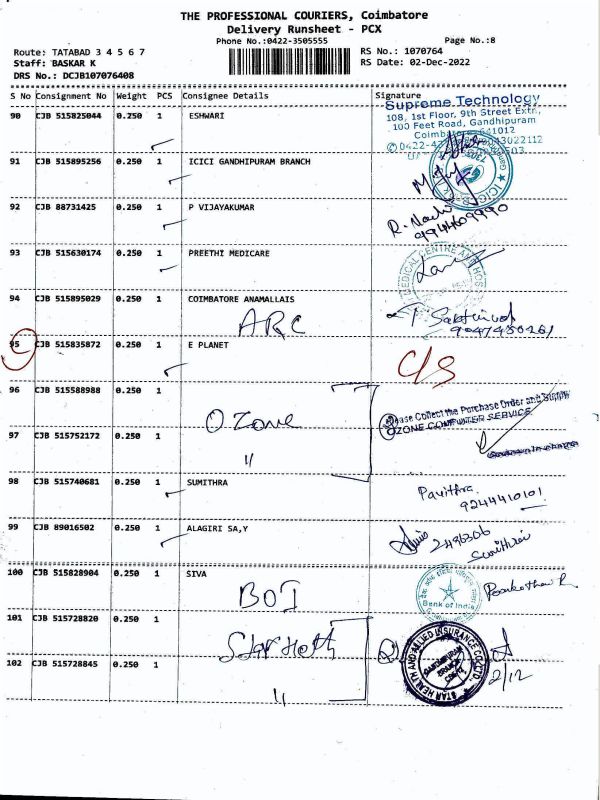 THE PROFESSIONAL COURIERS, Coimbatore
Delivery Runsheet - PCX
Phone No.:0422-3505555
Page No.:8
Route: TATABAD 3 4 5 6 7
RS No.: 1070764
Staff: BASKAR K
RS Date: 02-Dec-2022
DRS No.: DCJB107076408
S No Consignment No Weight PCS Consignee Details Signature
90 CJB 515825044 0.250 1 ESHWARI
Supreme Technology
108, 1st Floor, 9th Street Extn.,
100 Feet Road, Gandhipuram
Coimbatore-641012
91 CJB 515895256 0.250 1 ICICI GANDHIPURAM BRANCH
92 CJB 88731425 0.250 1 P VIJAYAKUMAR
9944609990
93 CJB 515630174 0.250 1 PREETHI MEDICARE
MEDICAL CENTRE AND HOS
94 CJB 515895029 0.250 1 COIMBATORE ANAMALLAIS
ARC
95 CJB 515835872 0.250 1 E PLANET
C/S
96 CJB 515588988 0.250 1
Ozone
Please Collect the Purchase Order and Supply
OZONE COMPUTER SERVICE
97 CJB 515752172 0.250 1
"
98 CJB 515740681 0.250 1 SUMITHRA
Pavithra
9244410101
99 CJB 89016502 0.250 1 ALAGIRI SA,Y
2496306
100 CJB 515828904 0.250 1 SIVA
BOI
Bank of India
101 CJB 515728820 0.250 1
Star Helth
STAR HEALTH AND ALLIED INSURANCE CO. LTD.
102 CJB 515728845 0.250 1
"
2/12